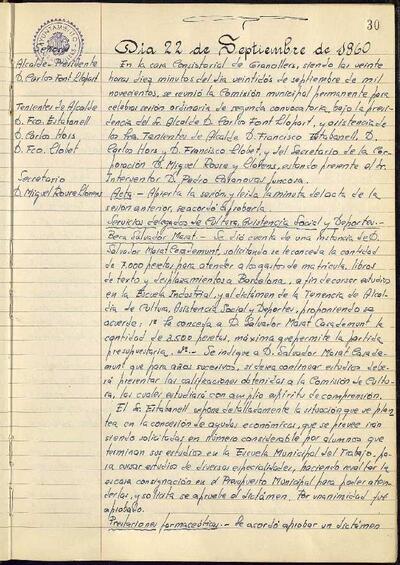 30
Día 22 de Septiembre de 1960
Alcalde-Presidente
D. Carlos Font Llopart
Tenientes de Alcalde
D. Fco. Estabanell
D. Carlos Hors
D. Fco. Llobet
Secretario
D. Miguel Roure Llorens
En la casa Consistorial de Granollers, siendo las veinte
horas diez minutos del día veintidós de septiembre de mil
novecientos, se reunió la Comisión municipal permanente para
celebrar sesión ordinaria de segunda convocatoria, bajo la presi-
dencia del Sr. Alcalde D. Carlos Font Llopart, y asistencia de
los Sres. Tenientes de Alcalde D. Francisco Estabanell, D.
Carlos Hors y D. Francisco Llobet, y del Secretario de la Cor-
poración D. Miguel Roure y Llorens, estando presente el Sr.
Interventor D. Pedro Casanovas Juncosa.
Acta - Abierta la sesión y leida la minuta del acta de la
sesión anterior, se acordó aprobarla.
Servicios delegados de Cultura, Asistencia Social y Deportes.-
Beca Salvador Morat.- Se dió cuenta de una instancia de D.
Salvador Morat Casademunt, solicitando se le conceda la cantidad
de 7.000 pesetas para atender a los gastos de matrícula, libros
de texto y desplazamientos a Barcelona, a fin de cursar estudios
en la Escuela Industrial, y al dictámen de la Tenencia de Alcal-
día de Cultura, Asistencia Social y Deportes, proponiendo se
acuerde: 1º Se conceda a D. Salvador Morat Casademunt la
cantidad de 3.500 pesetas, máxima que permite la partida
presupuestaria. 2º.- Se indique a D. Salvador Morat Casade-
munt que para años sucesivos, si desea continuar estudios debe-
rá presentar las calificaciones obtenidas a la Comisión de Cultu-
ra, las cuales estudiará con amplio espíritu de comprensión.
El Sr. Estabanell expone detalladamente la situación que se plan-
tea en la concesión de ayudas económicas, que se prevee irán
siendo solicitadas en número considerable por alumnos que
terminan sus estudios en la Escuela Municipal del Trabajo, pa-
ra cursar estudios de diversas especialidades, haciendo resaltar la
escasa consignación en el Presupuesto Municipal para poder aten-
derlas, y solicita se apruebe el dictámen. Por unanimidad fué
aprobado.
Prestaciones farmacéuticas.- Se acordó aprobar un dictámen